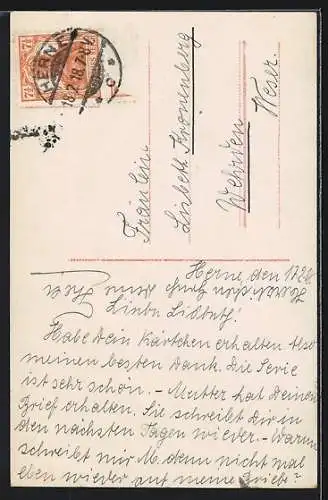 HERNE
18.2.18.7-8V.
* c
7½
7½
Fräulein
Lisbeth Kronenberg
Wehrden
Weser.
Herne, den 17.2.18
Liebe Lisbeth!
Habe Dein Kärtchen erhalten Also
meinen besten Dank. Die Serie
ist sehr schön. – Mutter hat Deinen
Brief erhalten. Sie schreibt Dir in
den nächsten Tagen wieder. – Warum
schreibt mir M. denn nicht mal
eben wieder auf meine Briefe?